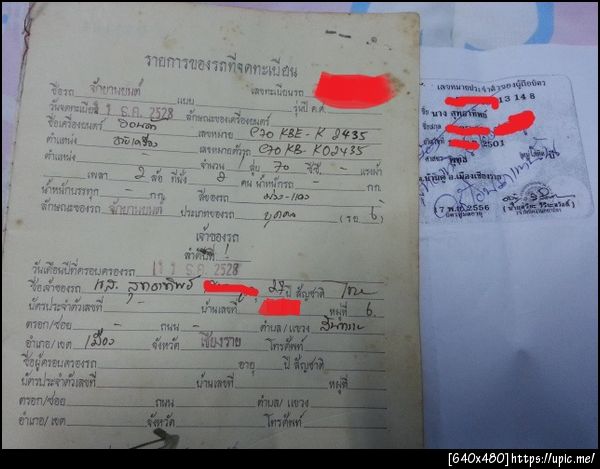 รายการของรถที่จดทะเบียน
ชื่อรถ จักรยานยนต์ แบบ เลขทะเบียนรถ
วันจดทะเบียน 11 ธ.ค. 2528 ลักษณะของเครื่องยนต์ รุ่นปี ค.ศ.
ชื่อเครื่องยนต์ ฮอนดา เลขหมาย C70 KBE-K 2435
ตำแหน่ง เลขหมายตัวรถ C70 KB-K02435
ตำแหน่ง จำนวน สูบ 70 ซี.ซี. แรงม้า
เพลา 2 ล้อ ที่นั่ง 2 คน น้ำหนักรถ กก.
น้ำหนักบรรทุก กก. สีของรถ
ลักษณะของรถ จักรยานยนต์ ประเภทของรถ บุคคล (รย 6)
เจ้าของรถ
ลำดับที่ 1
วันเดือนปีที่ครอบครองรถ 11 ธ.ค. 2528
ชื่อเจ้าของรถ น.ส. สุทธาทิพย์ 27 ปี สัญชาติ ไทย
บัตรประจำตัวเลขที่ - บ้านเลขที่ หมู่ที่ 6
ตรอก/ซอย - ถนน - ตำบล/แขวง
อำเภอ/เขต เมือง จังหวัด เชียงราย โทรศัพท์
ชื่อผู้ครอบครองรถ อายุ ปี สัญชาติ
บัตรประจำตัวเลขที่ บ้านเลขที่ หมู่ที่
ตรอก/ซอย ถนน ตำบล/แขวง
อำเภอ/เขต จังหวัด โทรศัพท์
เลขหมายประจำตัวของผู้ถือบัตร
13 14 8
ชื่อ นาง สุทธาทิพย์
ชื่อสกุล
2501
ศาสนา พุทธ
อ.เมืองเชียงราย
17 พ.ย. 2556
บัตรหมดอายุ
[640x480]https://upic.me/